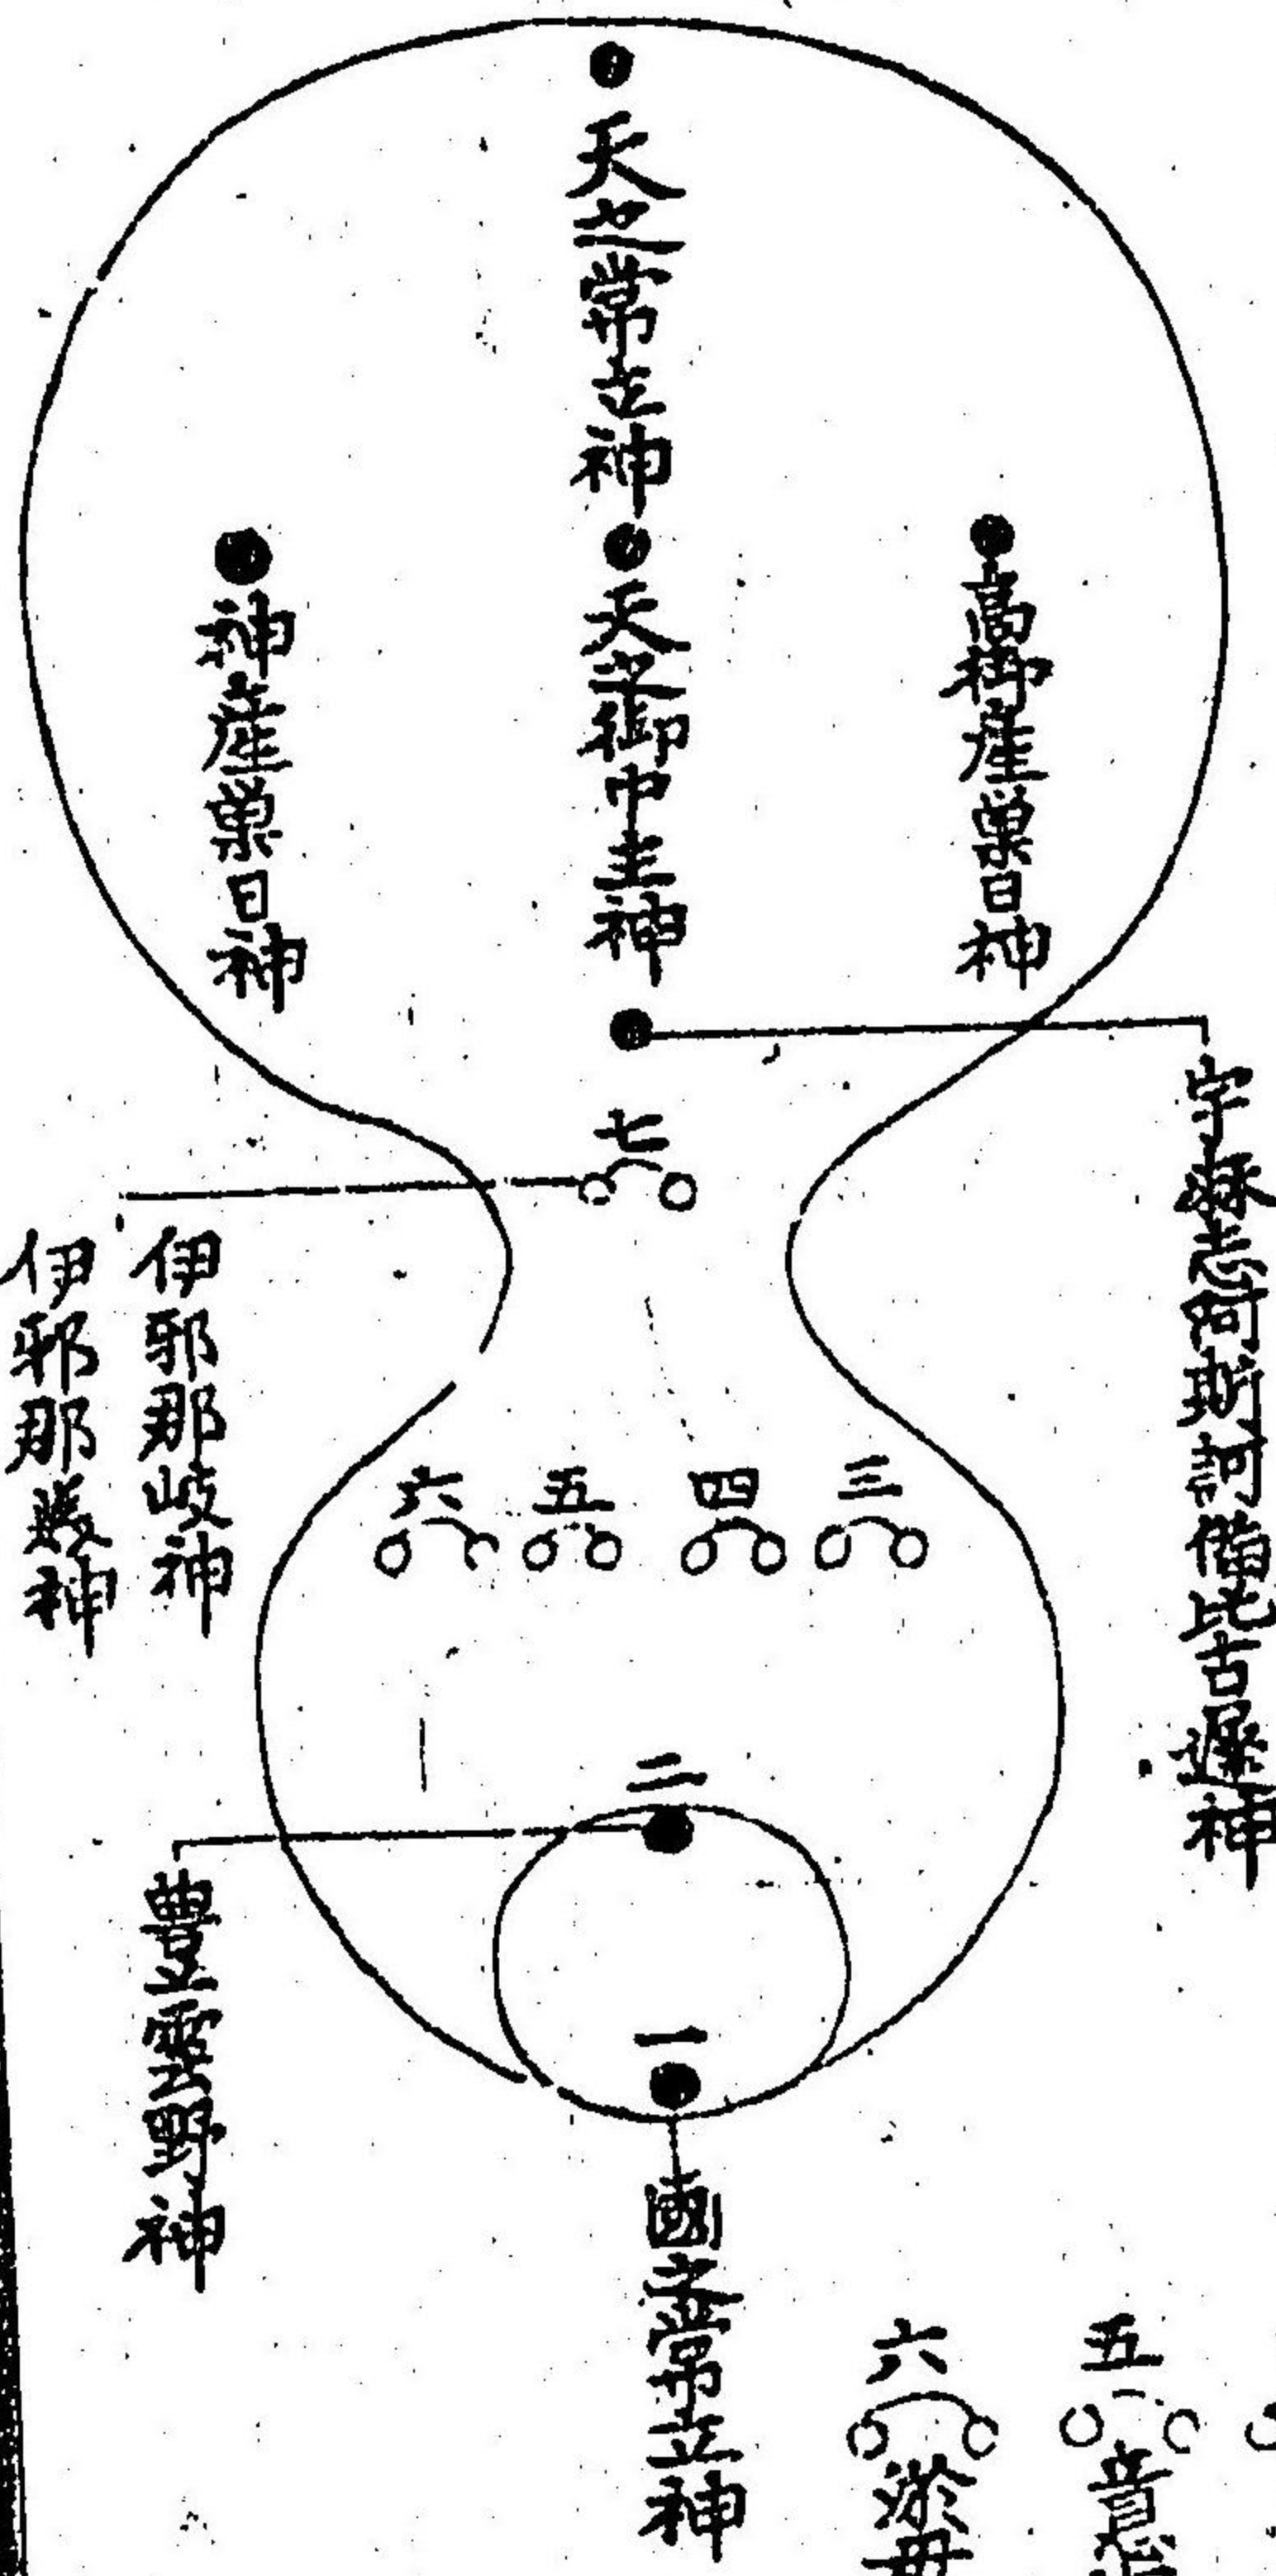 天之常立神
高御産巣日神
天之御中主神
神産巣日神
宇麻志阿斯訶備比古遅神
七
伊邪那岐神
伊邪那美神
三
四
五
六
二
豊雲野神
一
國之常立神
五
六